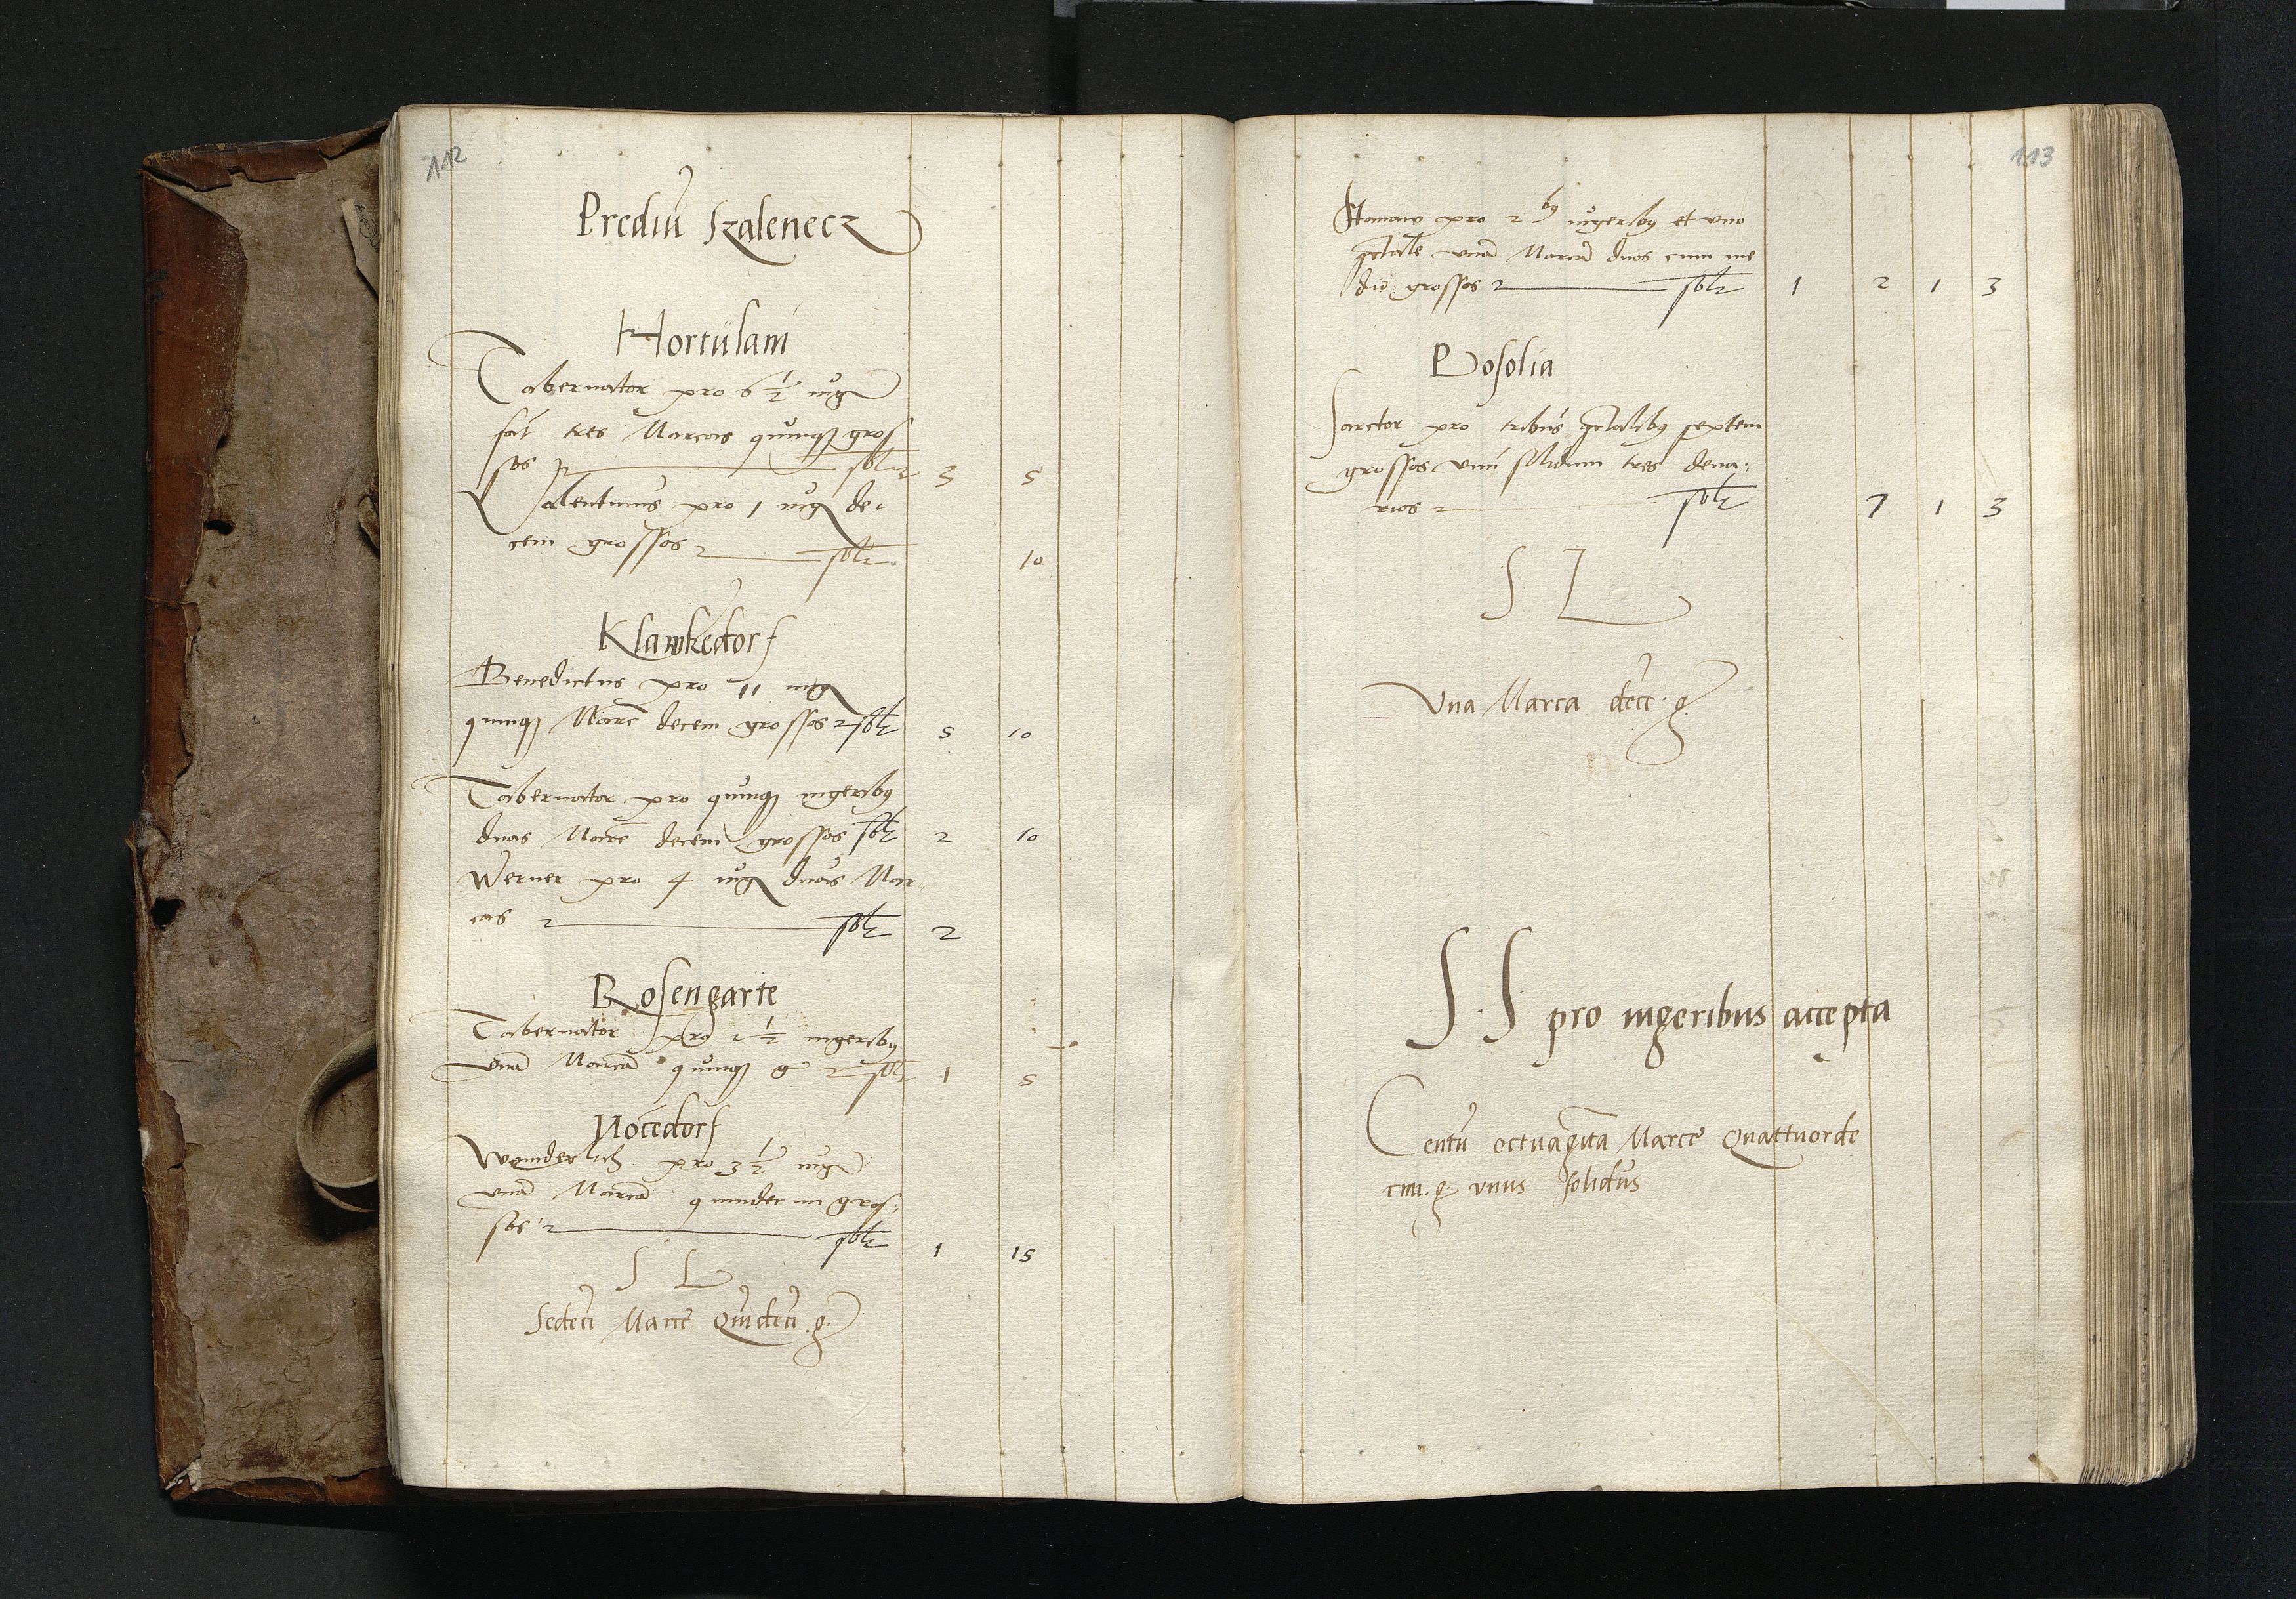 112
Prediu Szalenecz
Hortulani
Tabernator pro 6 1/2 iug
fat tres Marcas quinqz gros
sos solt 3 5
Valentinus pro 1 iug de-
cem grossos solt 10
Klawkedorf
Benedictus pro 11 iug
quinqz Marc decem grossos solt 5 10
Tabernator pro quinqz iugeribus
duas Marc decem grossos solt 2 10
Werner pro 4 iug duas Mar-
cas solt 2
Rosengarte
Tabernator pro 2 1/2 iugeribus
una Marca quinqz g solt 1 5
Nocedorf
Wunderlich pro 3 1/2 iug
una Marca quindecim gros-
sos solt 1 15
S L
Sedeci Marce Quideci g
113
pro 2 bus iugeribus et uno
una Marca duos cum me
dio grossos solt 1 2 1 3
Posolia
Sartor pro tribus septem
grossos unu solidum tres dena-
rios solt 7 1 3
S L
Una Marca dece g
S S pro iugeribus accepta
Centu octuagita Marce Quattuorde
cim g unus solidus